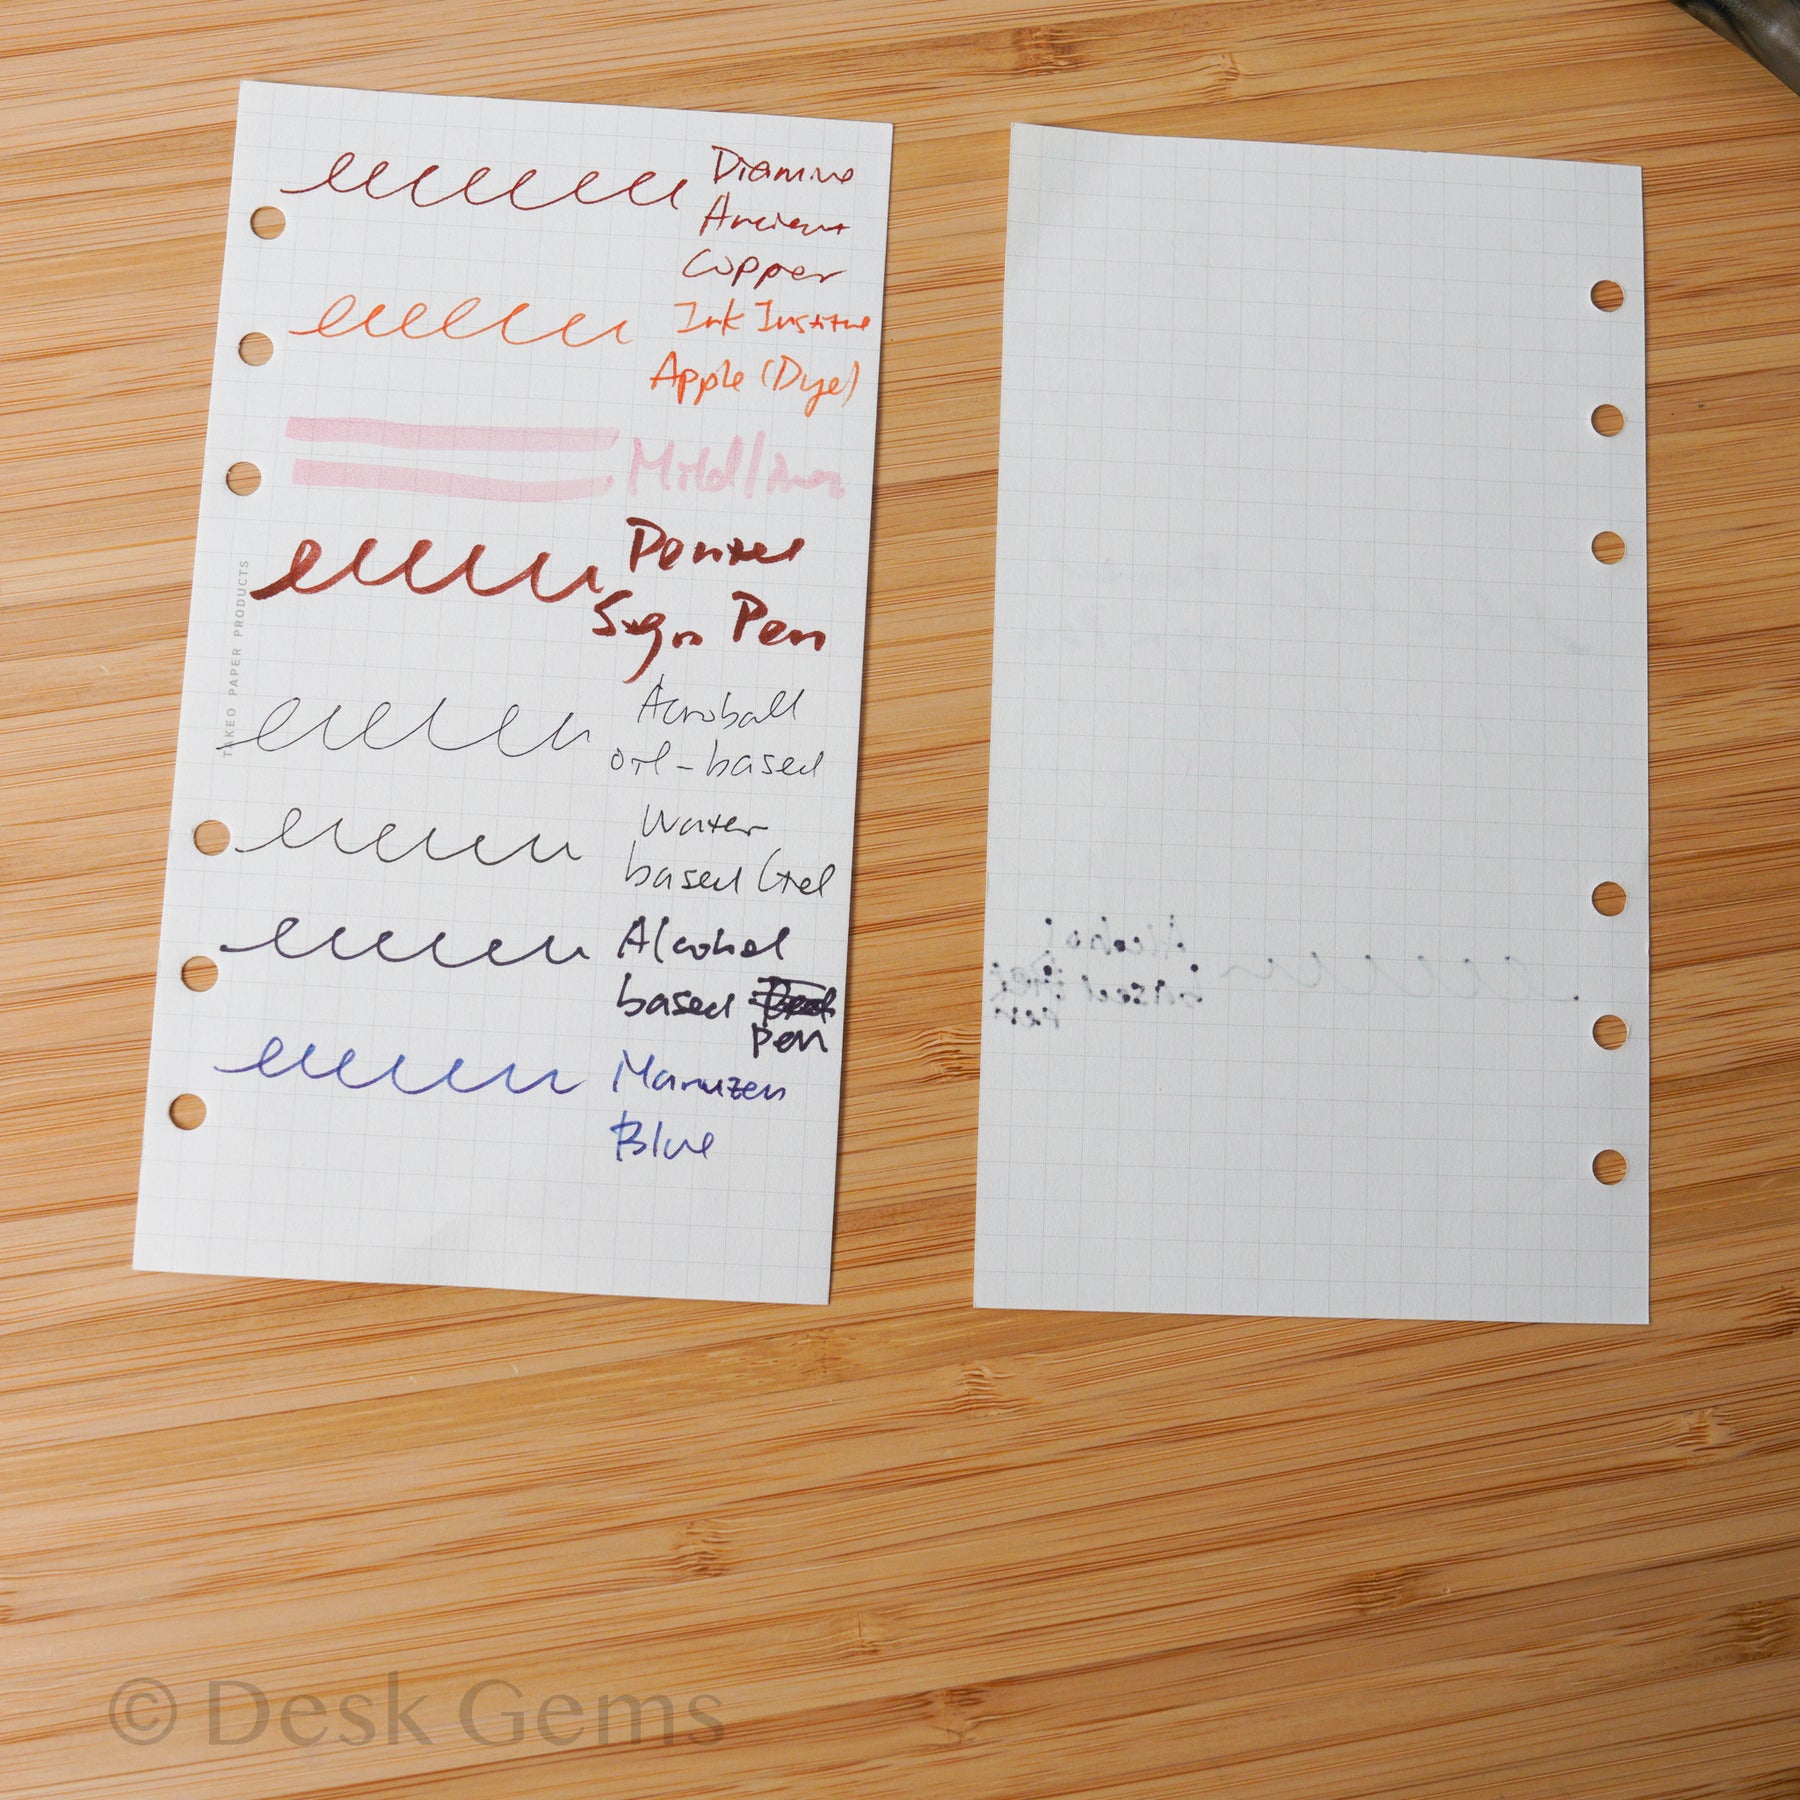 Diamine
Ancient
Copper
Ink Institue
Apple (Dye)
Mildliner
Pentel
Sign Pen
TAKEO PAPER PRODUCTS
Acroball
oil-based
Water
based Gel
Alcohol
based
Pen
Maruzen
Blue
Alcohol
based
Pen
© Desk Gems